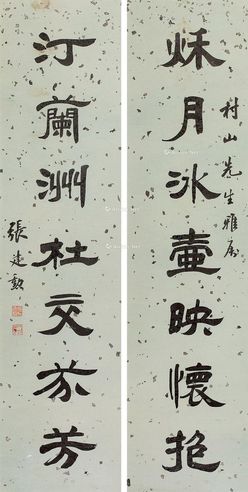 村山先生雅属
秌月冰壶映懷抱
汀蘭洲杜交芬芳
張建勳